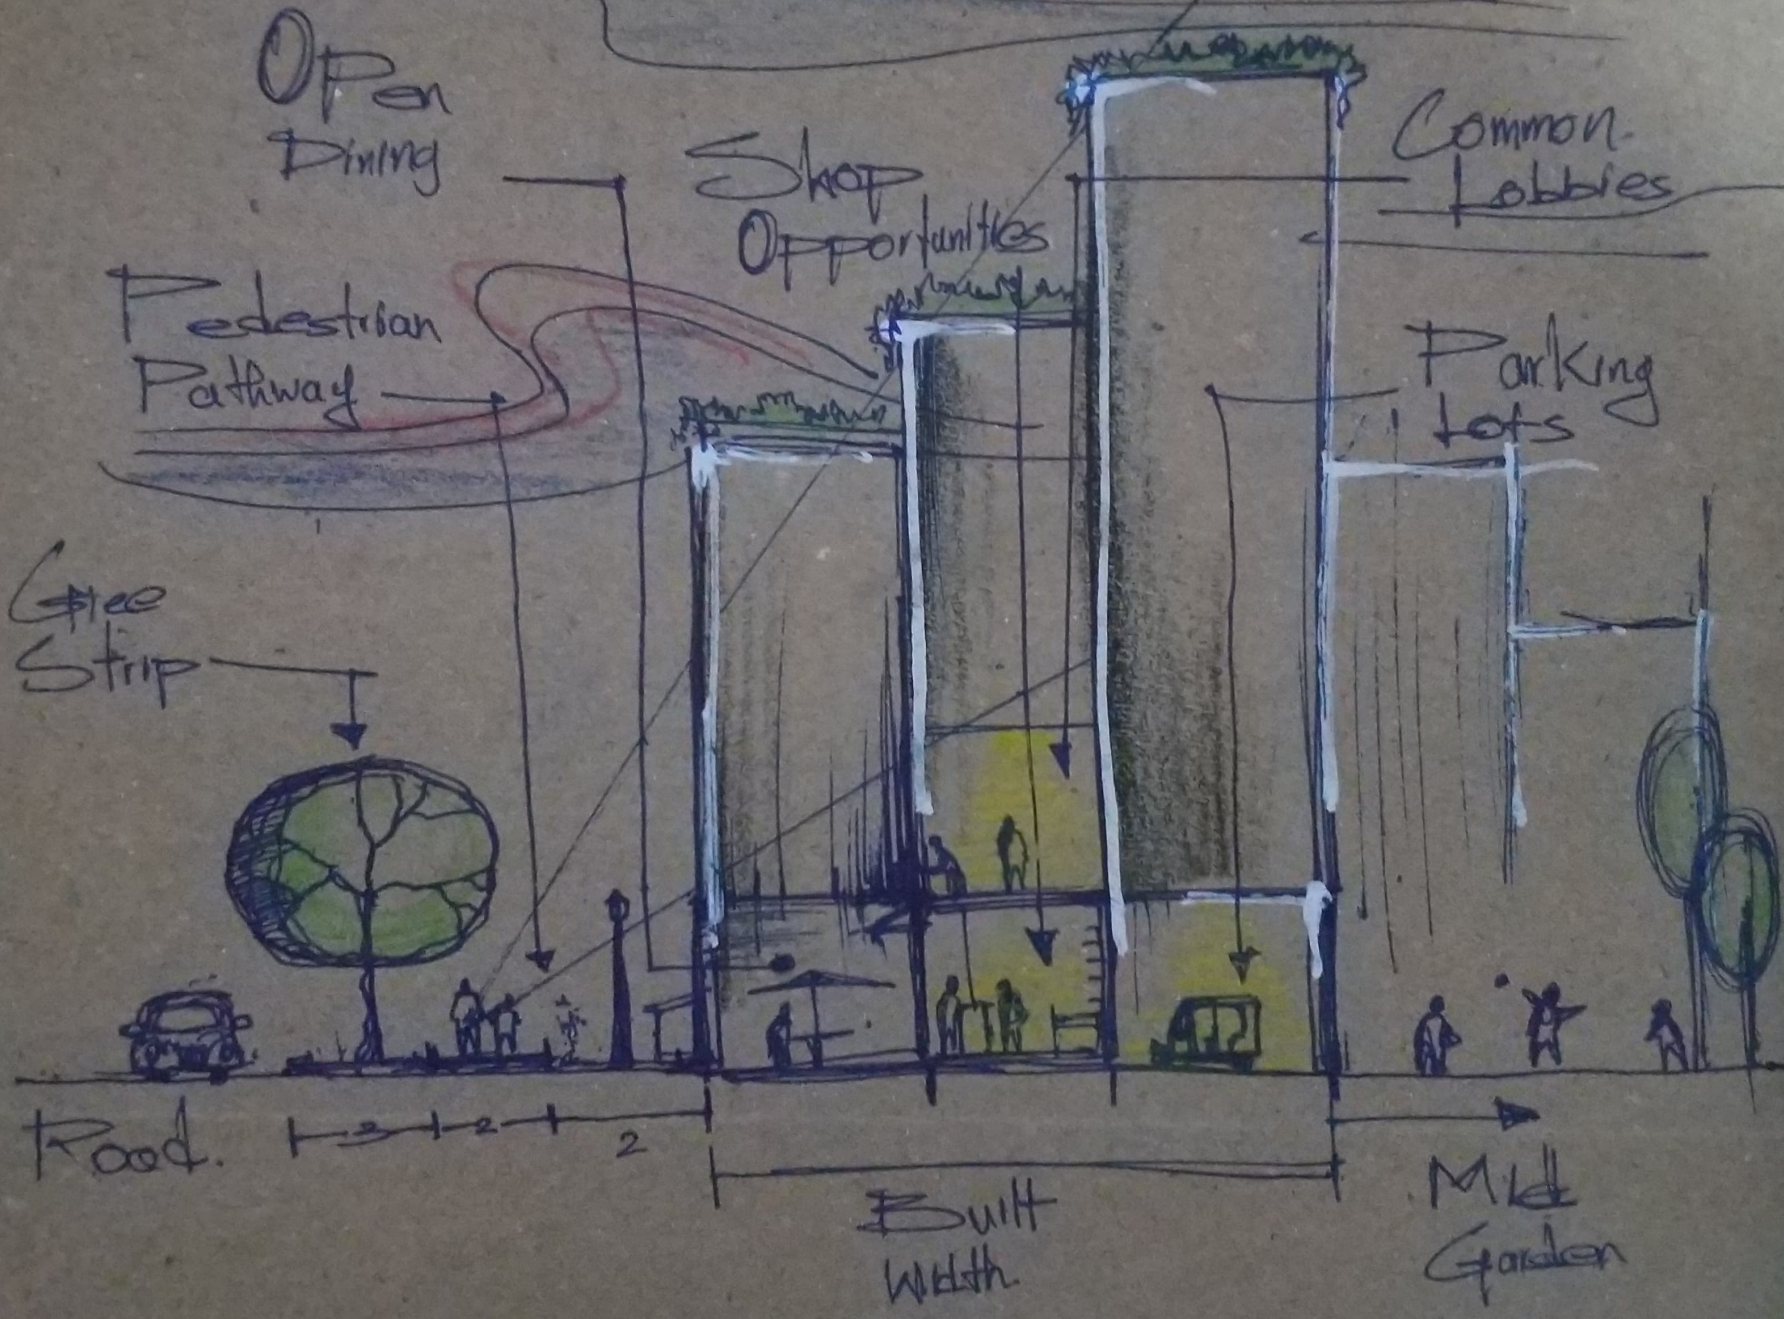 Open
Dining
Shop
Opportunities
Common
Lobbies
Pedestrian
Pathway
Parking
Lots
Gree
Strip
Road.
3
2
2
Built
Width.
Midd
Garden